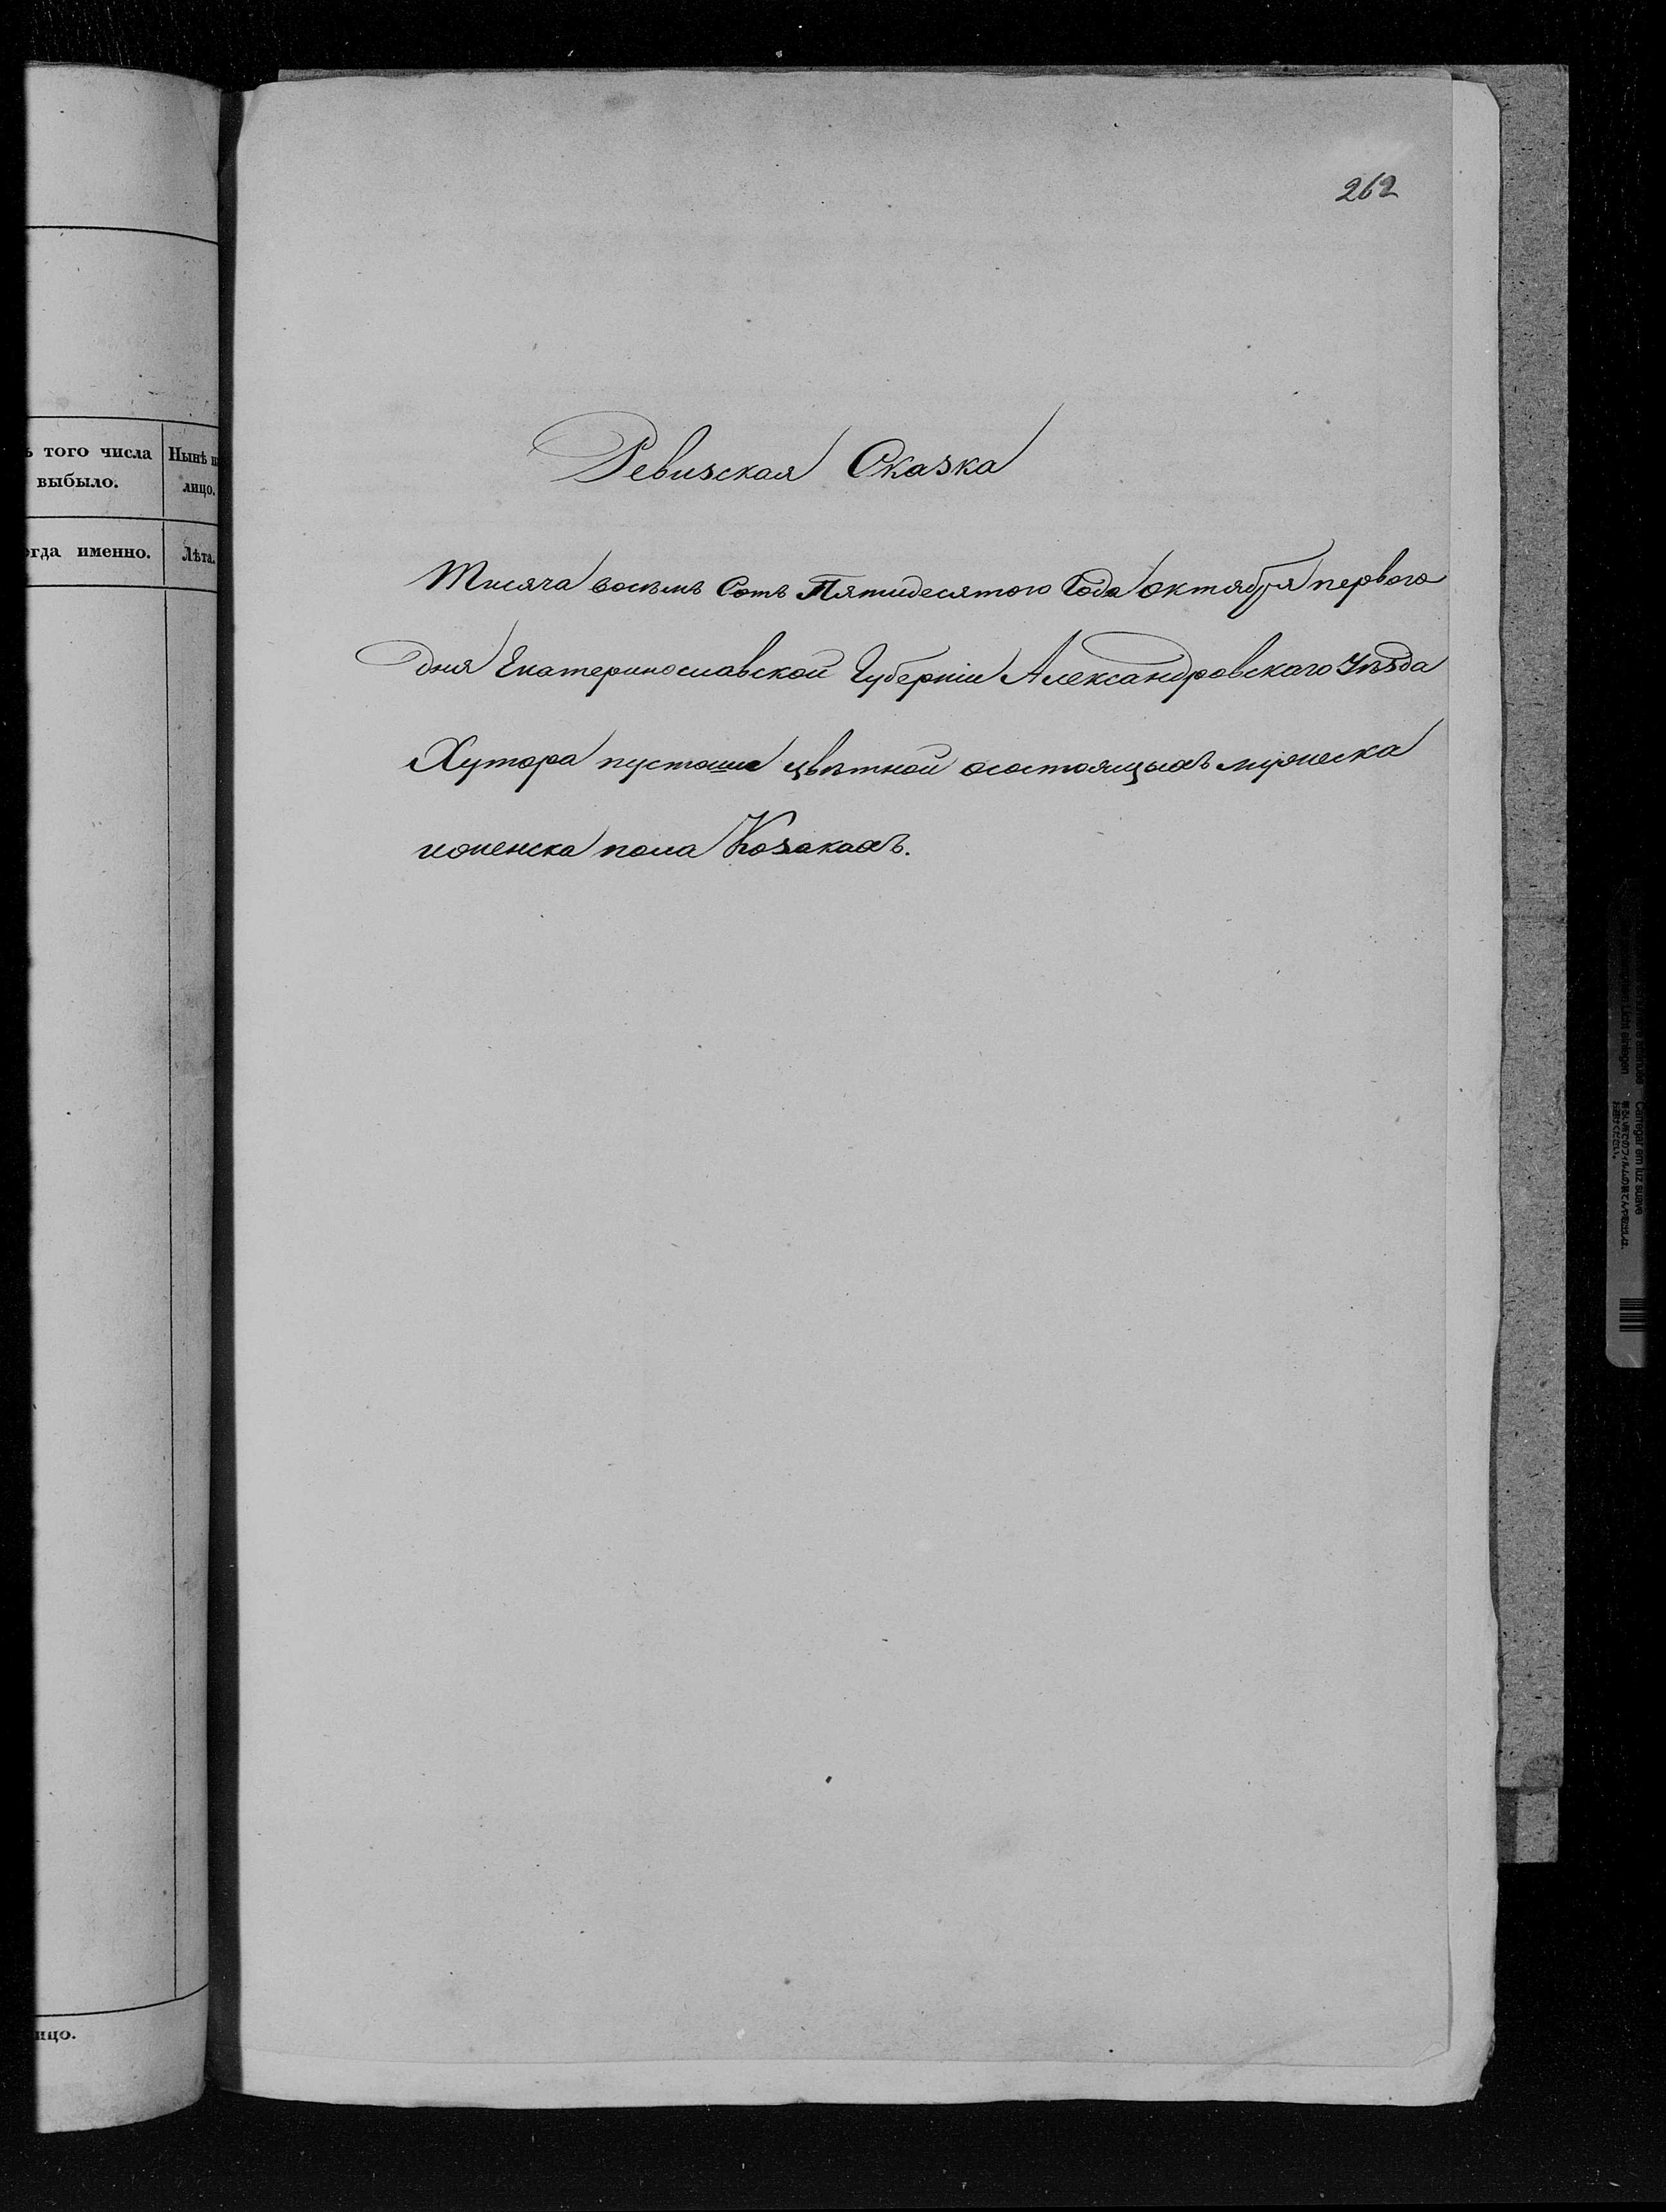 262
ъ того числа
выбыло.
Нынѣ н
лицо.
огда именно.
Лѣта.
Ревизская Сказка
Тисяча восемь Сотъ Пятидесятого Года октября первого
дня Екатеринославской Губерніи Александровскаго Уѣзда
Хутора пустоши цвѣтной осостоящыхъ мужеска
иженска пола Козакахъ.
ицо.